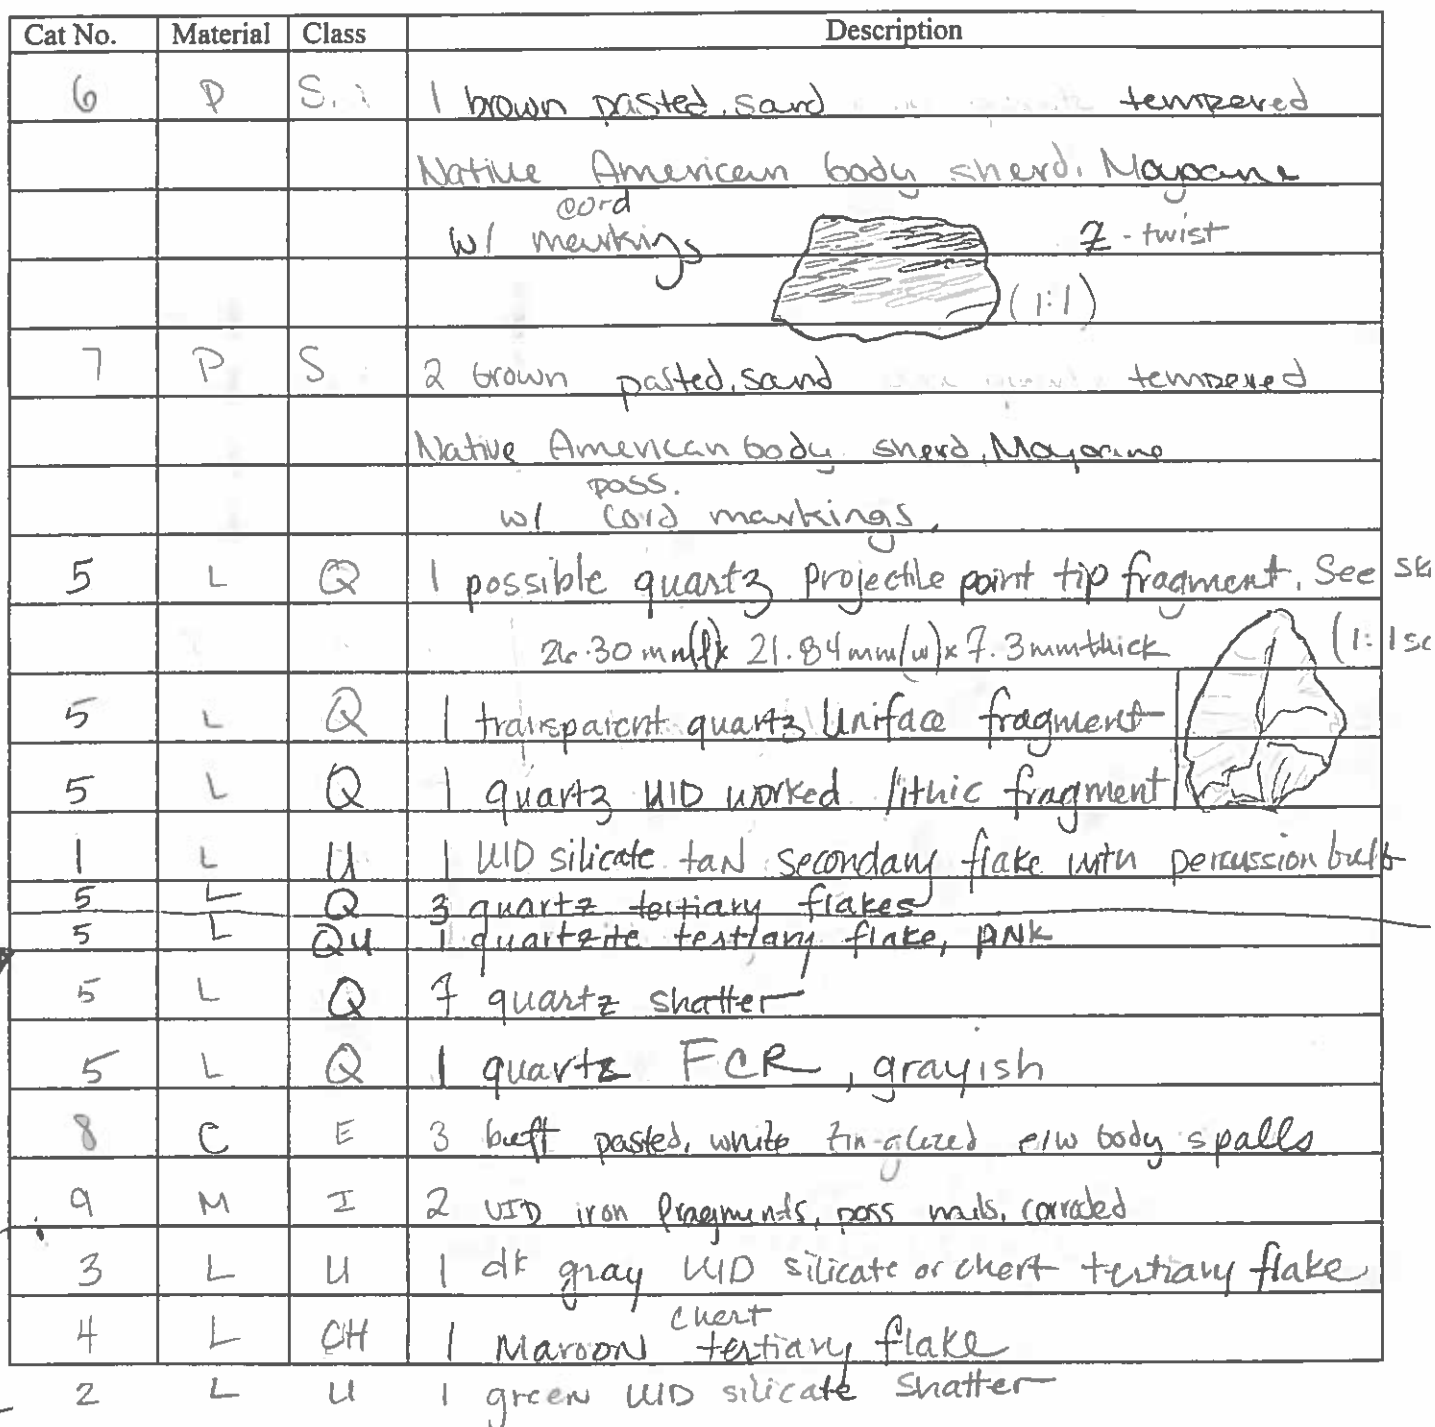 Cat No. Material Class Description
6 P S. 1 brown pasted, sand tempered
Native American body sherd. Moyaone
cord
w/ markings Z-twist
(1:1)
7 P S 2 brown pasted, sand tempered
Native American body sherd, Moyaone
poss.
w/ cord markings,
5 L Q 1 possible quartz projectile point tip fragment. See sk
26.30 mm(l)x 21.84mm(w)x 7.3mm thick (1:1sc
5 L Q 1 transparent quartz Uniface fragment
5 L Q 1 quartz UID worked lithic fragment
1 L U 1 UID silicate tan secondary flake with percussion bulb
5 L Q 3 quartz tertiary flakes
5 L QU 1 quartzite tertiary flake, pink
5 L Q 7 quartz shatter
5 L Q 1 quartz FCR, grayish
8 C E 3 buff pasted, white tin-glazed e/w body spalls
9 M I 2 UID iron fragments, poss nails, corroded
3 L U 1 dk gray UID silicate or chert tertiary flake
chert
4 L CH 1 Maroon tertiary flake
2 L U 1 green UID silicate shatter